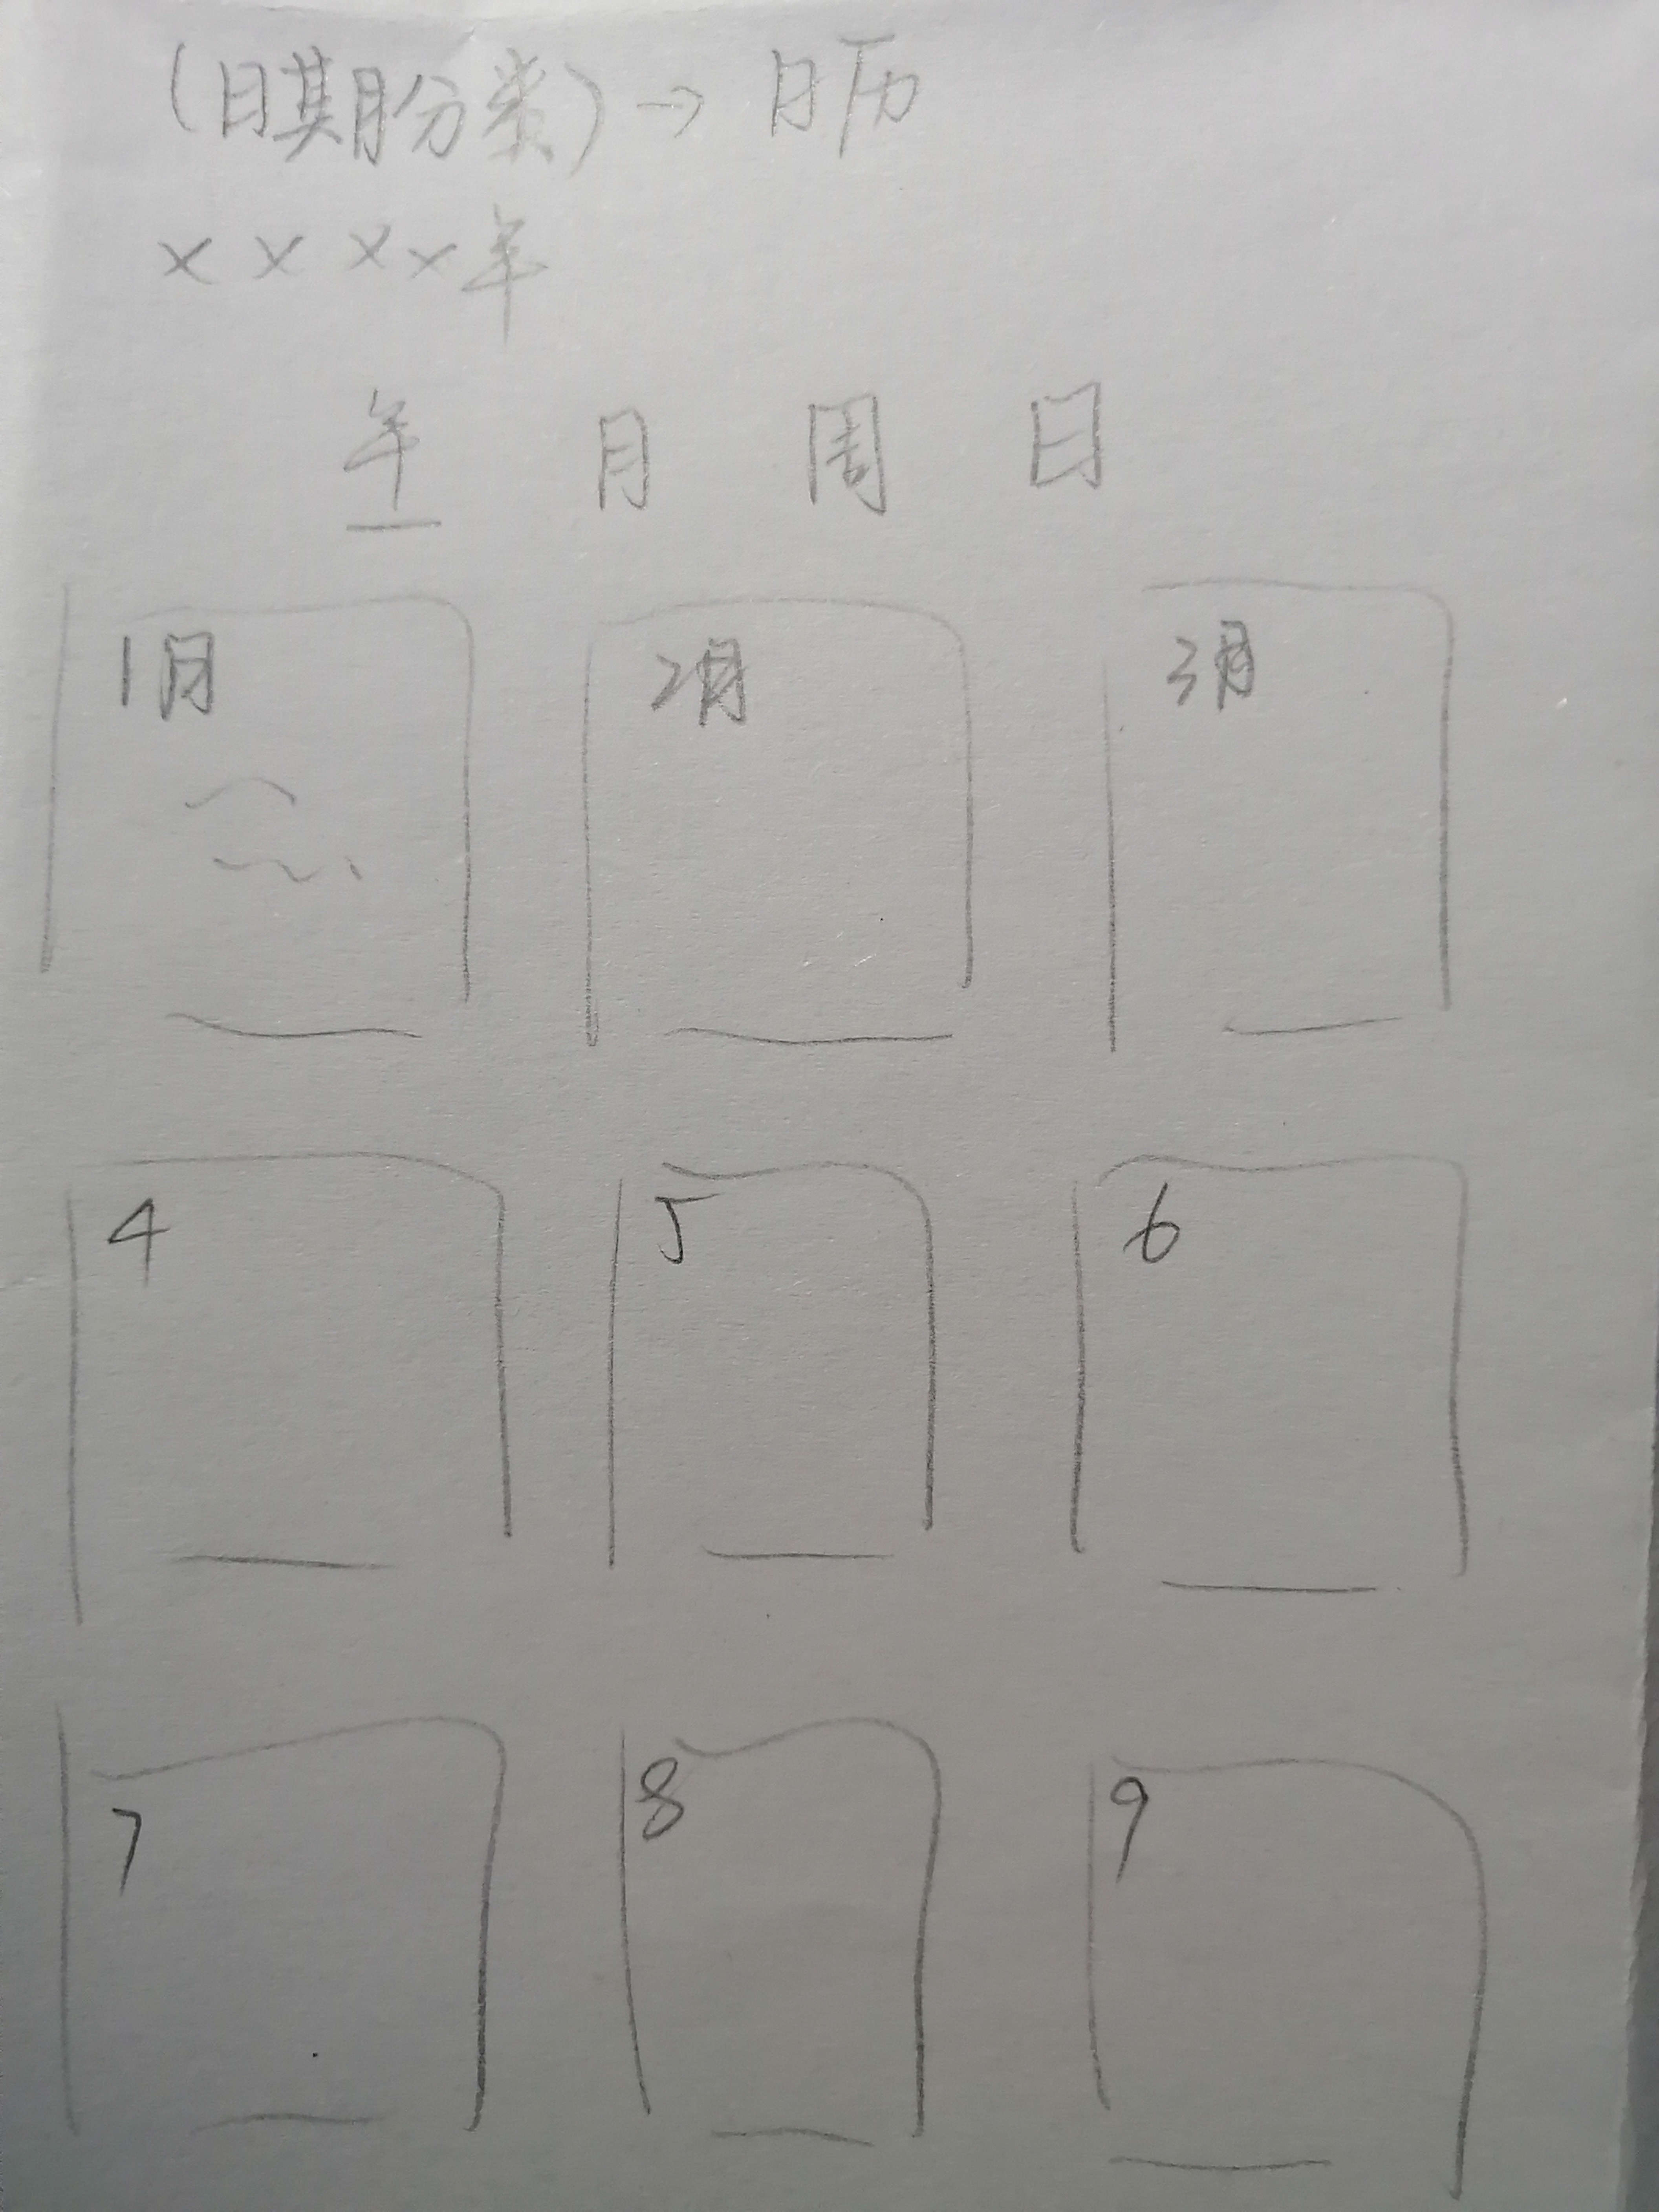 (日期月份类)→日历
××××年
年 月 周 日
1月 2月 3月
4 5 6
7 8 9